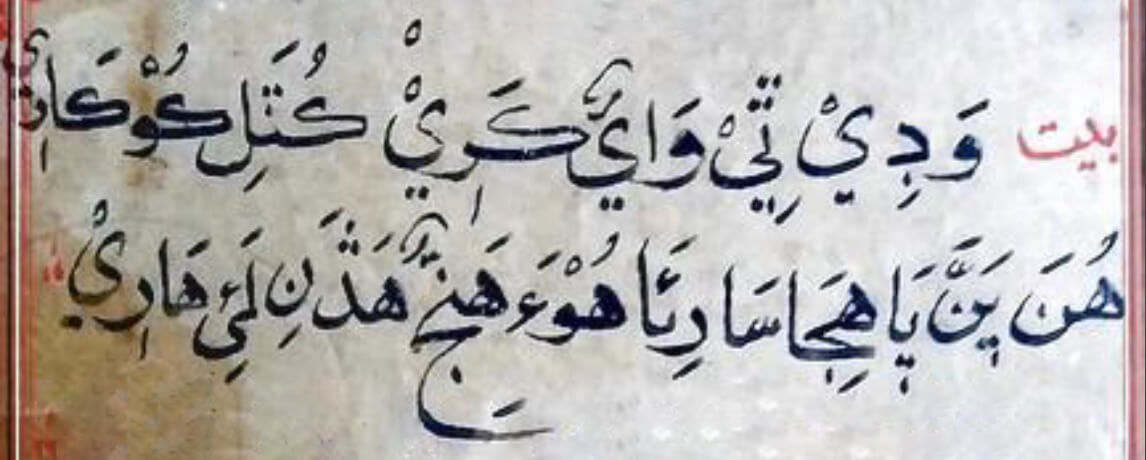 بيت وَدِيْ تِيْ وَايُّ كَرِيْ كُتَلِ كُوْكَارِيْ
هُنَ پَنَّ پَاهِجَا سَارِئَا هُوْءَ هَنجُّ هَڎَنِ لَئِ هَارِيْ